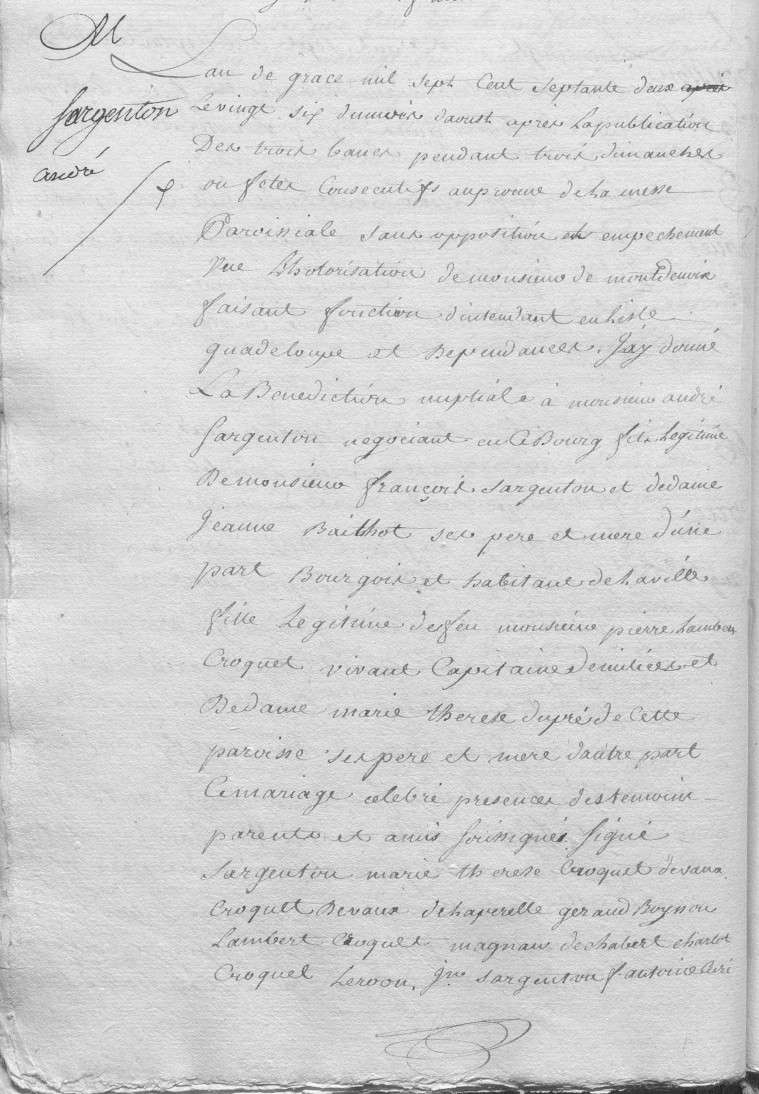 M
Sargenton
André
Lan de grace mil sept Cent septante deux après
Le vingt six du mois daoust apres La publication
Des trois bancs pendant trois dimanches
ou fetes Consecutifs au prone de La messe
Paroissiale sans opposition et empechement
Vue Lhotorisation de monsieur de montdenoix
faisant fonction dintendant en Lisle
guadeloupe et Dependances. Jay donné
La Benediction nuptiale à monsieur andré
Sargenton negociant en Ce Bourg fils Legitime
De monsieur françois Sargenton et de dame
Jeanne Baithot ses pere et mere d'une
part Bourgois et habitant de La ville
fille Legitime de feu monsieur pierre Lambert
Croquet vivant Capitaine de milices et
De dame marie therese dupré de Cette
paroisse ses pere et mere dautre part
Ce mariage celebré presences des temoins
parents et amis soussignés. Signé
Sargenton marie therese Croquet devaux
Croquet Devaux dehapcelle geraud Boynon
Lambert Croquet magnan de chabert charlot
Croquet Leroon, Jne Sargenton f. antoine